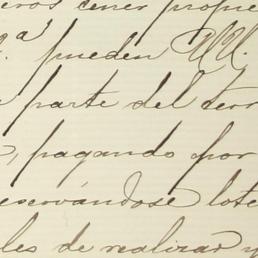 eros tener propie
2.ª pueden UU.
parte del terr
, pagando por
eservándose lote
les de realizar y